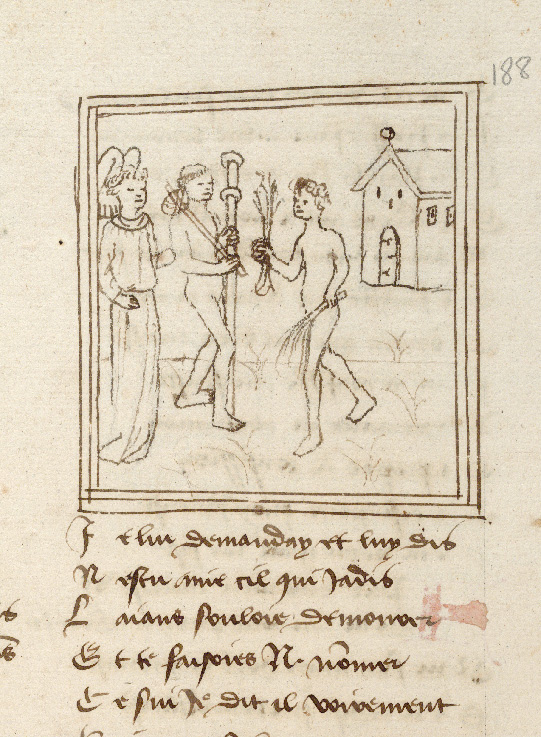 188
Je lui demanday et luy dis
N estu mie cil qui Jadis
L aians souloie demourer
E t te faisoies N. nōmer
C e sui Je dit il voirement